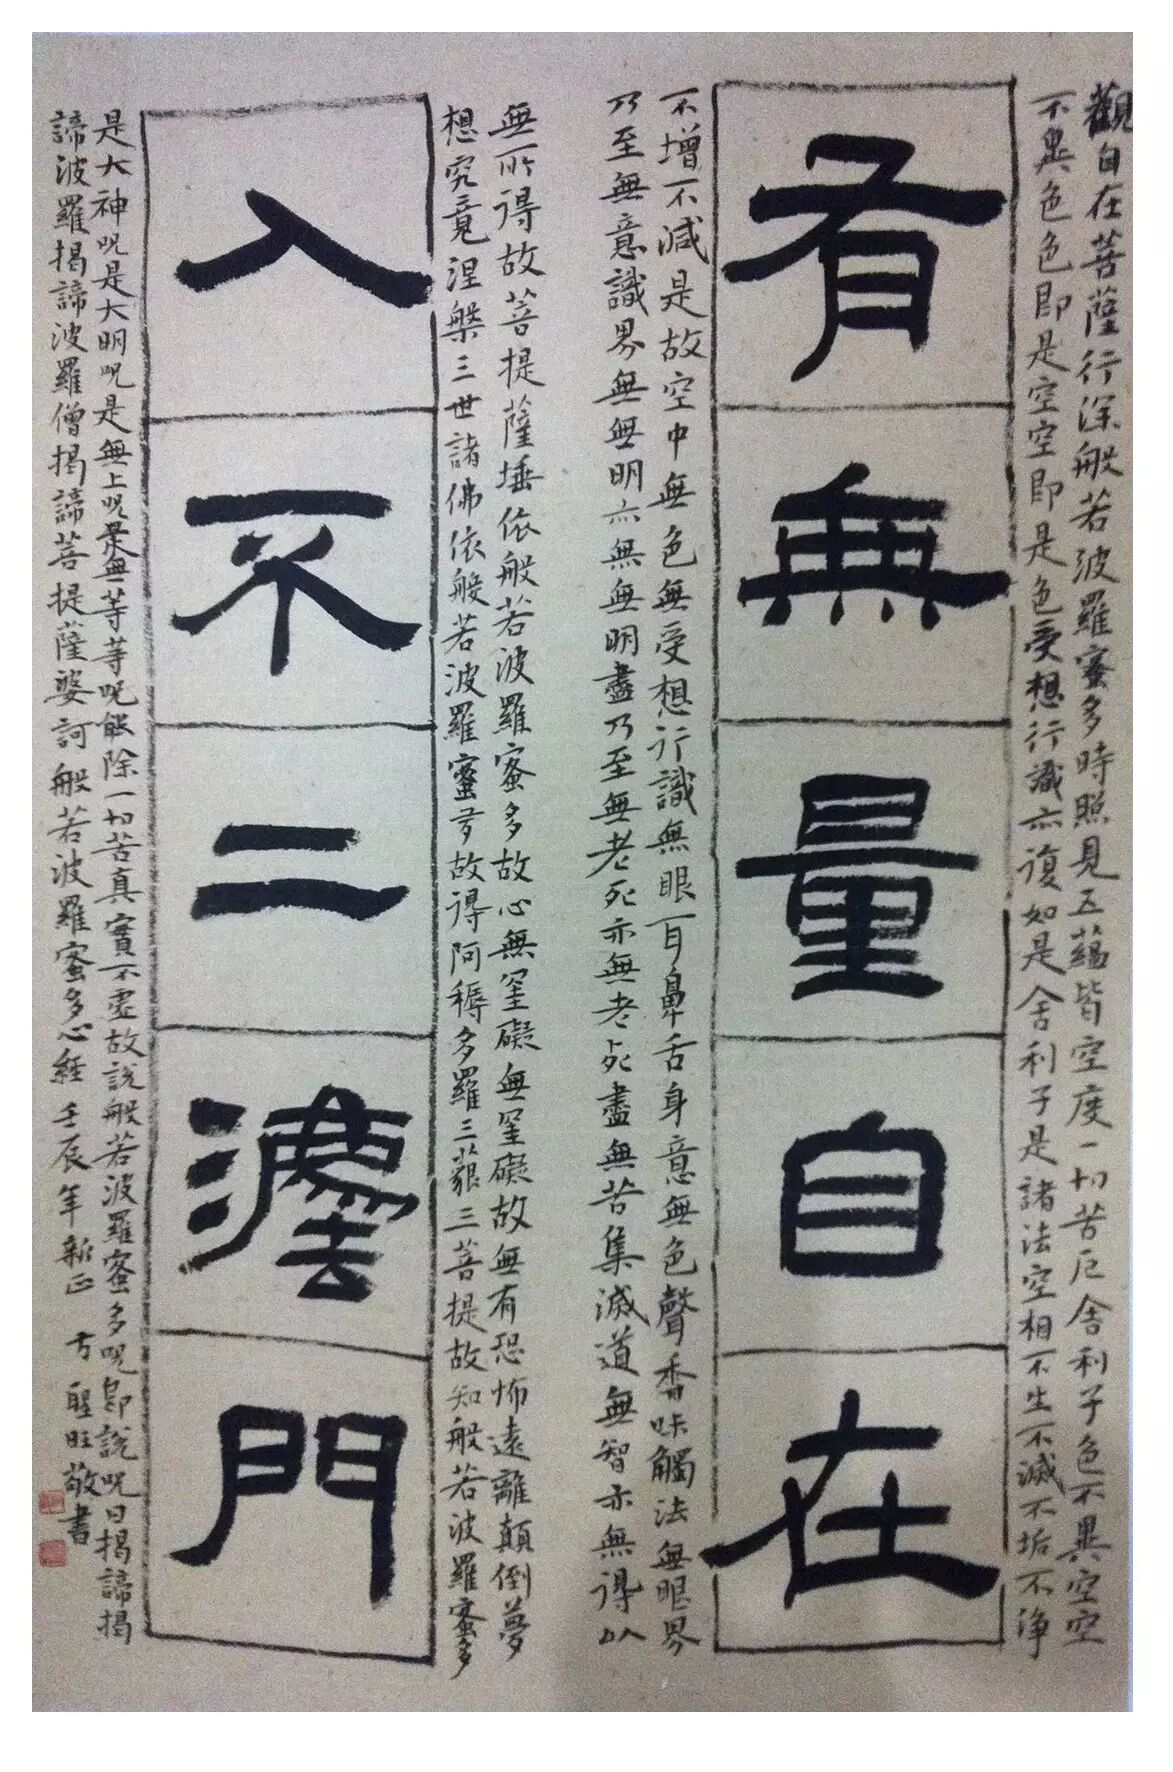 觀自在菩薩行深般若波羅蜜多時照見五蘊皆空度一切苦厄舍利子色不異空空
不異色色即是空空即是色受想行識亦復如是舍利子是諸法空相不生不滅不垢不净
有無量自在
不增不減是故空中無色無受想行識無眼耳鼻舌身意無色聲香味觸法無眼界
乃至無意識界無無明亦無無明盡乃至無老死亦無老死盡無苦集滅道無智亦無得以
無所得故菩提薩埵依般若波羅蜜多故心無罣礙無罣礙故無有恐怖遠離顛倒夢
想究竟涅槃三世諸佛依般若波羅蜜多故得阿耨多羅三藐三菩提故知般若波羅蜜多
入不二灋門
是大神呪是大明呪是無上呪是無等等呪能除一切苦真實不虛故說般若波羅蜜多呪即說呪曰揭諦揭
諦波羅揭諦波羅僧揭諦菩提薩婆訶般若波羅蜜多心經 壬辰年新正 方 旺敬書